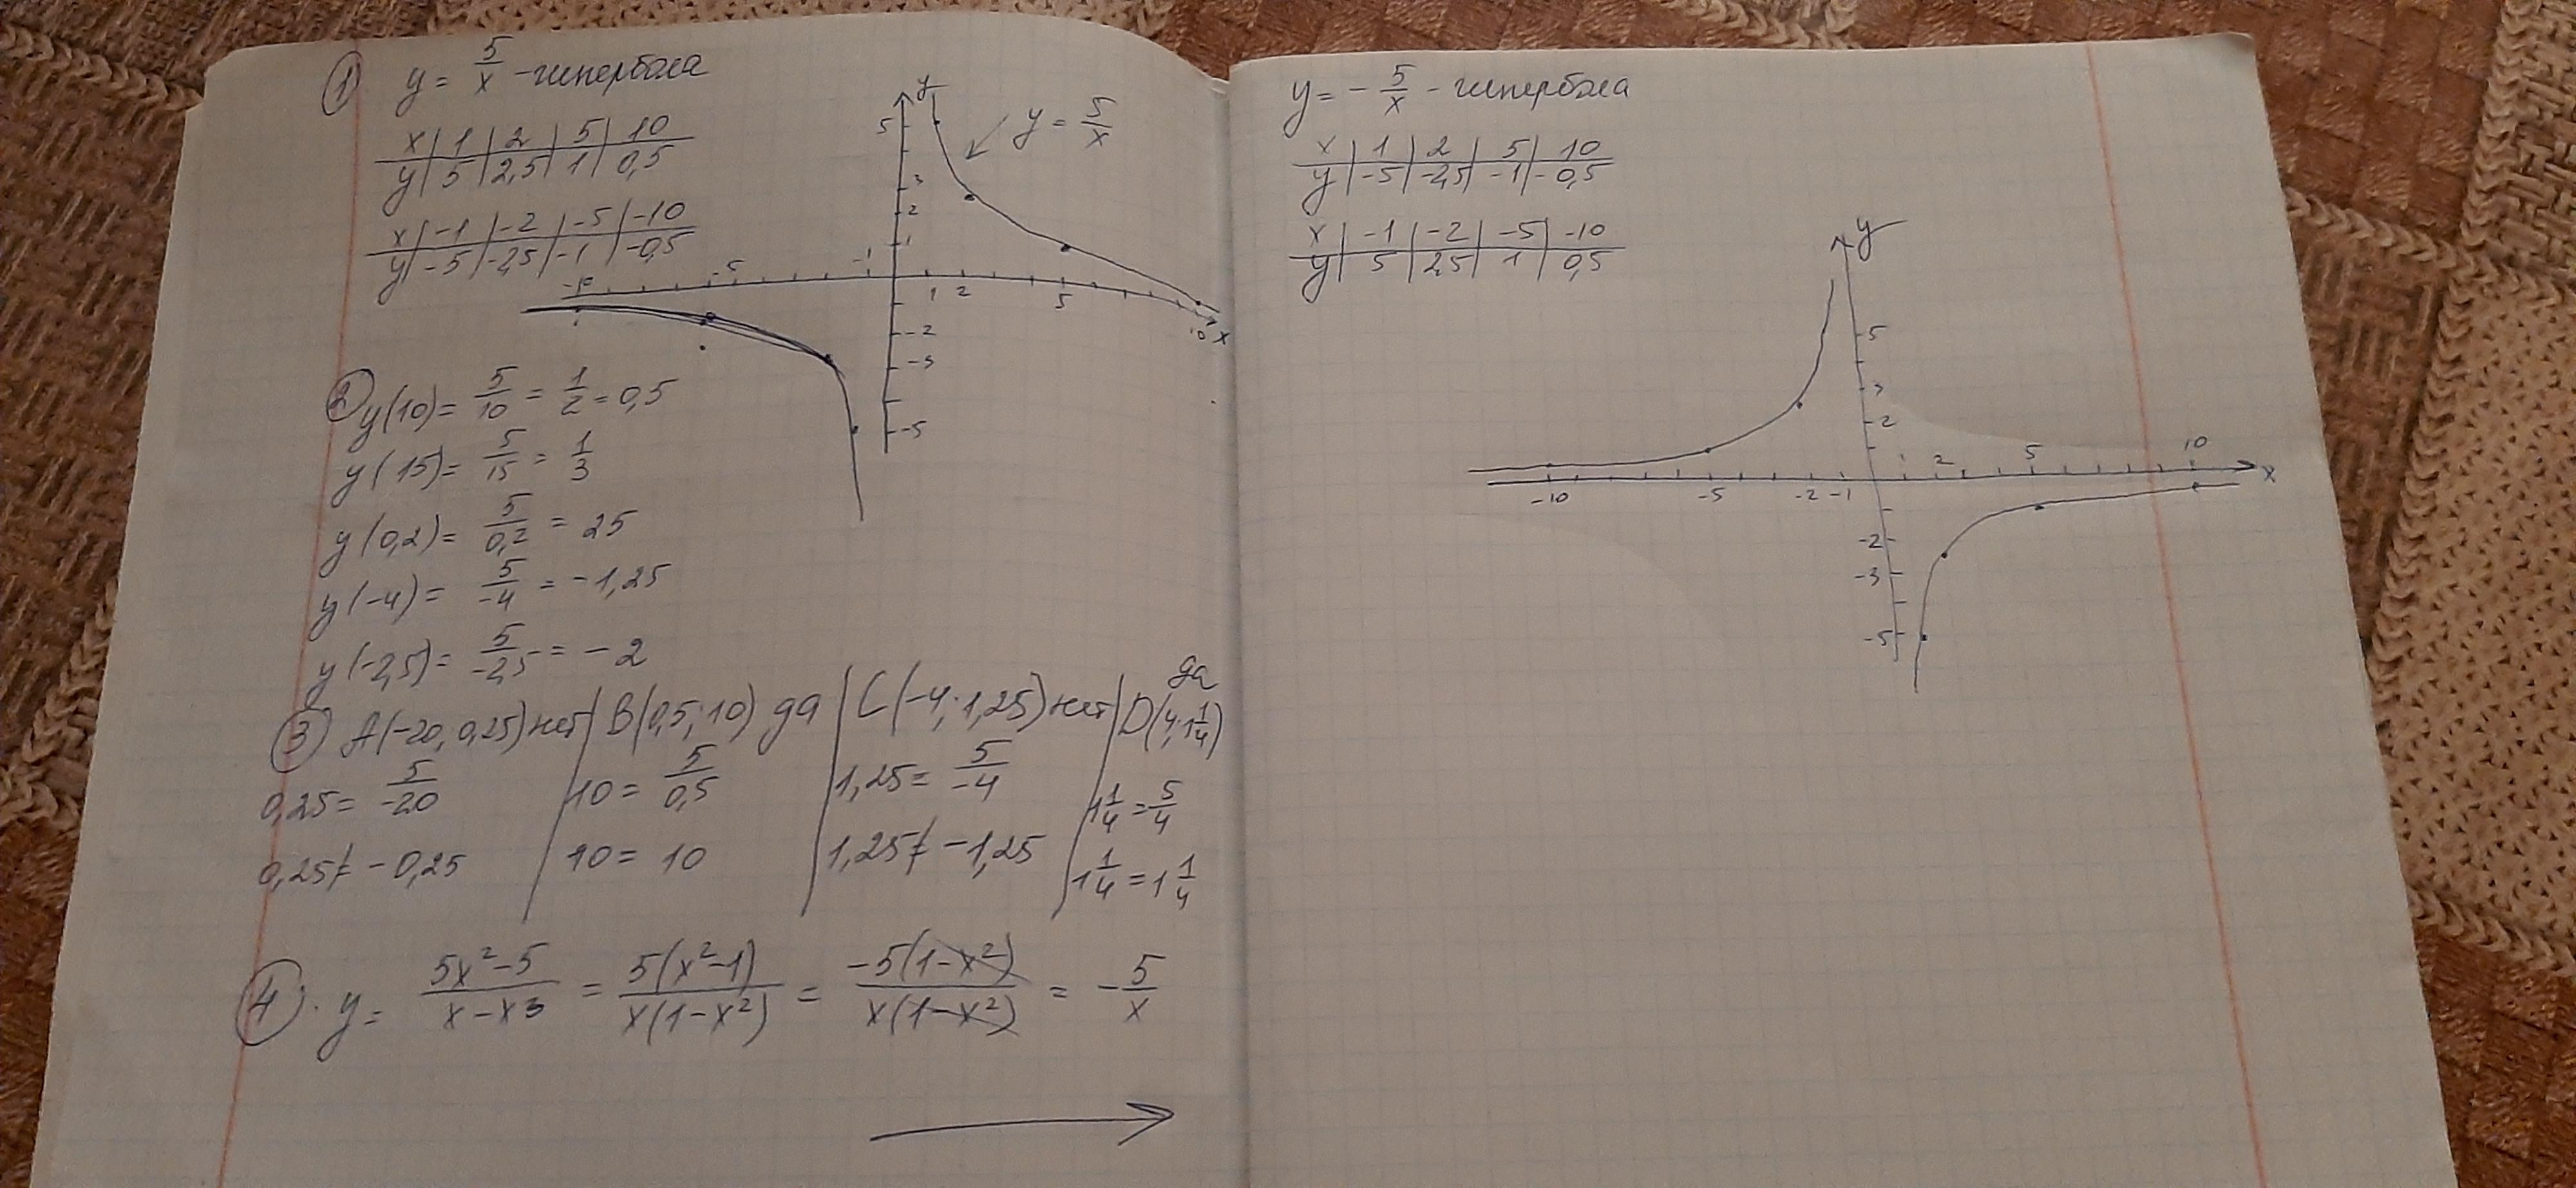 ① y = 5/x - гипербола
x | 1 | 2 | 5 | 10
y | 5 | 2,5 | 1 | 0,5
x | -1 | -2 | -5 | -10
y | -5 | -2,5 | -1 | -0,5
y
y = 5/x
5
3
2
1
-5 -1
1 2 5 10 x
-2
-3
-5
② y(10) = 5/10 = 1/2 = 0,5
y(15) = 5/15 = 1/3
y(0,2) = 5/0,2 = 25
y(-4) = 5/-4 = -1,25
y(-2,5) = 5/-2,5 = -2
③ A(-20, 0,25) нет | B(0,5; 10) да | C(-4; 1,25) нет | D(4; 1 1/4) да
0,25 = 5/-20 | 10 = 5/0,5 | 1,25 = 5/-4 | 1 1/4 = 5/4
0,25 ≠ -0,25 | 10 = 10 | 1,25 ≠ -1,25 | 1 1/4 = 1 1/4
④ y = 5x²-5/x-x3 = 5(x²-1)/x(1-x²) = -5(1-x²)/x(1-x²) = -5/x
y = -5/x - гипербола
x | 1 | 2 | 5 | 10
y | -5 | -2,5 | -1 | -0,5
x | -1 | -2 | -5 | -10
y | 5 | 2,5 | 1 | 0,5
y
5
3
2
1 2 5 10
x
-10 -5 -2 -1
-2
-3
-5